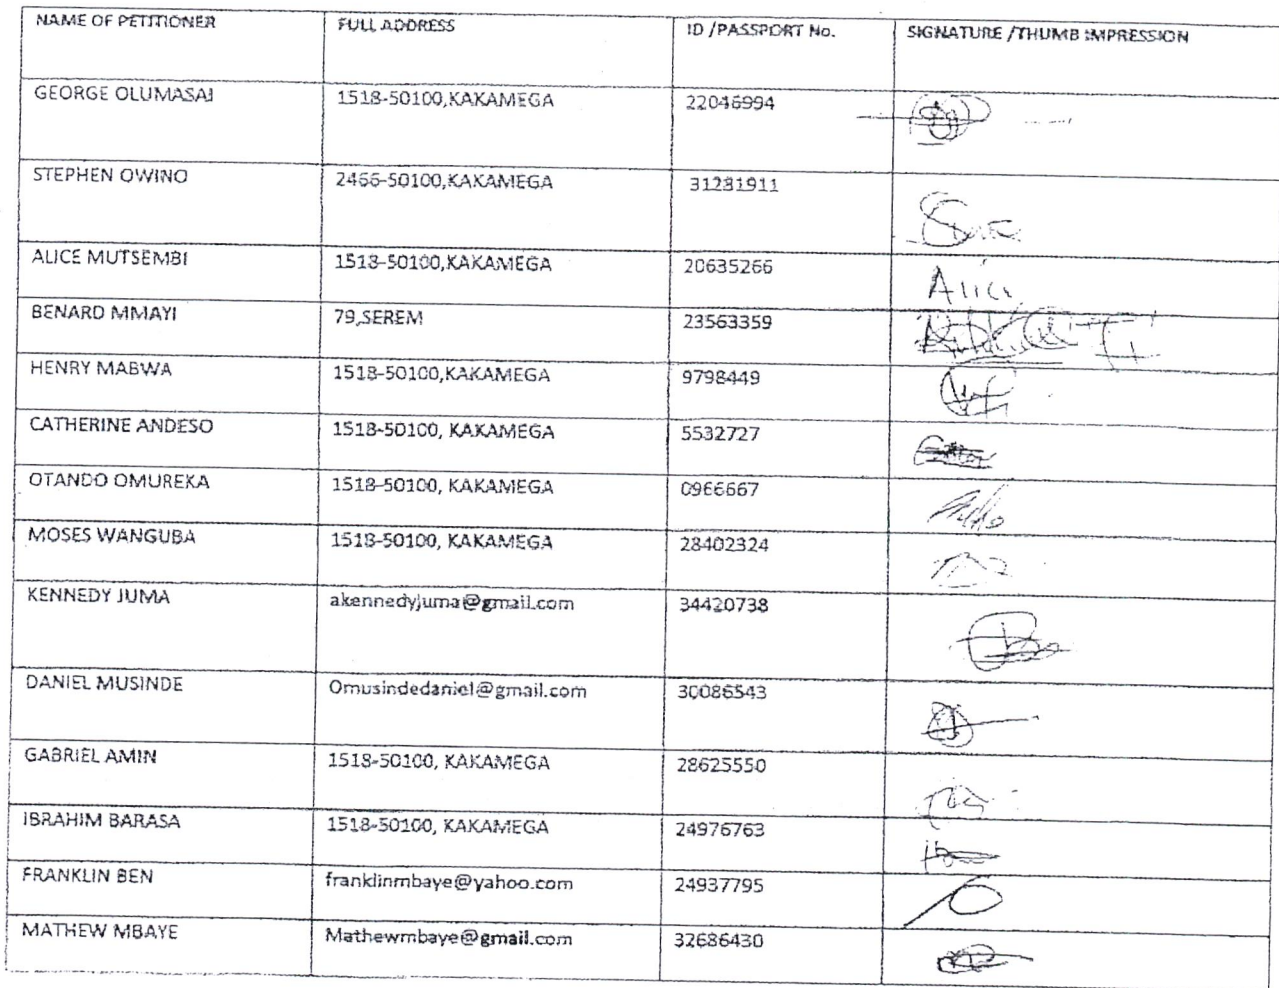 NAME OF PETITIONER FULL ADDRESS ID /PASSPORT No. SIGNATURE /THUMB IMPRESSION
GEORGE OLUMASAI 1518-50100,KAKAMEGA 22046994
STEPHEN OWINO 2466-50100,KAKAMEGA 31281911
ALICE MUTSEMBI 1518-50100,KAKAMEGA 20635266 Alice
BENARD MMAYI 79,SEREM 23563359
HENRY MABWA 1518-50100,KAKAMEGA 9798449
CATHERINE ANDESO 1518-50100, KAKAMEGA 5532727
OTANDO OMUREKA 1518-50100, KAKAMEGA 0966667
MOSES WANGUBA 1518-50100, KAKAMEGA 28402324
KENNEDY JUMA akennedyjuma@gmail.com 34420738
DANIEL MUSINDE Omusindedaniel@gmail.com 30086543
GABRIEL AMIN 1518-50100, KAKAMEGA 28625550
IBRAHIM BARASA 1518-50100, KAKAMEGA 24976763
FRANKLIN BEN franklinmbaye@yahoo.com 24937795
MATHEW MBAYE Mathewmbaye@gmail.com 32686430